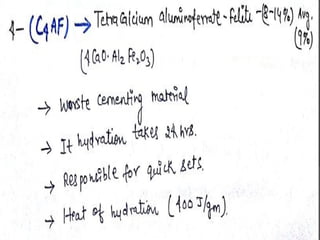 4- (C4AF) → TetraCalcium Aluminoferrate - Felite - (8-14%) Avg.
(9%)
(4CaO. Al2 Fe2O3)
→ Worste cementing material
→ It hydration takes 24 hrs.
→ Responsible for quick sets.
→ Heat of hydration (400 J/gm).